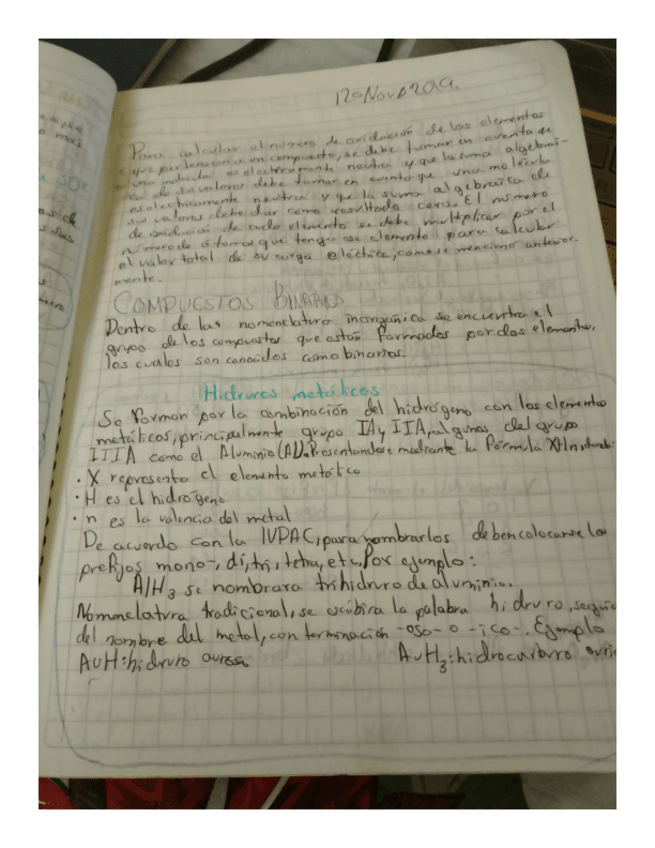 12 Nov 2019.
Para calcular el número de oxidación de los elementos
que pertenecen a un compuesto, se debe tomar en cuenta que
una molécula es electricamente neutra y que la suma algebrai-
ca de sus valores debe tomar en cuenta que una molécula
es electricamente neutra y que la suma algebraica de
sus valores debe dar como resultado cero. El número
de oxidación de cada elemento se debe multiplicar por el
número de átomos que tenga ese elemento para calcular
el valor total de su carga eléctrica, como se menciono anterior-
mente.
COMPUESTOS BINARIOS
Dentro de las nomenclatura inorgánica se encuentra el
grupo de los compuestos que están formados por dos elementos,
los cuales son conocidos como binarios.
Hidruros metálicos
Se forman por la combinación del hidrógeno con los elementos
metálicos, principalmente grupo IA y IIA, algunos del grupo
IIIA como el Aluminio (Al). Presentandose mediante la fórmula XHn
· X representa el elemento metálico
· H es el hidrógeno
· n es la valencia del metal
De acuerdo con la IUPAC, para nombrarlos deben colocarse los
prefijos mono-, di, tri, tetra, etc. Por ejemplo:
AlH3 se nombrara trihidruro de aluminio.
Nomenclatura tradicional, se escribira la palabra hidruro, seguid
del nombre del metal, con terminación -oso- o -ico-. Ejemplo
AuH: hidruro auroso AuH3: